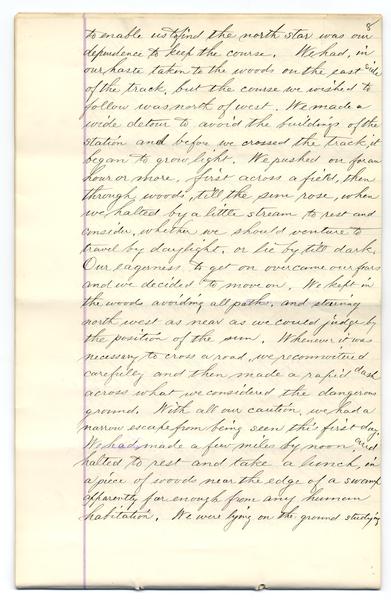 8
to enable us to find the north star was our
dependence to keep the course. We had, in
our haste taken to the woods on the east side
of the track, but the course we wished to
follow was north of west. We made a
wide detour to avoid the buildings of the
station and before we crossed the track it
began to grow light. We pushed on for an
hour or more, first across a field, then
through woods, till the sun rose, when
we halted by a little stream to rest and
consider, whether we should venture to
travel by daylight, or lie by till dark.
Our eagerness to get on overcame our fears
and we decided to move on. We kept in
the woods avoiding all paths, and steering
north west as near as we could judge by
the position of the sun. Whenever it was
necessary to cross a road, we reconnoitered
carefully and then made a rapid dash
across what we considered the dangerous
ground. With all our caution, we had a
narrow escape from being seen the first day.
We had made a few miles by noon, and
halted to rest and take a lunch, in
a piece of woods near the edge of a swamp
apparently far enough from any human
habitation. We were lying on the ground studying